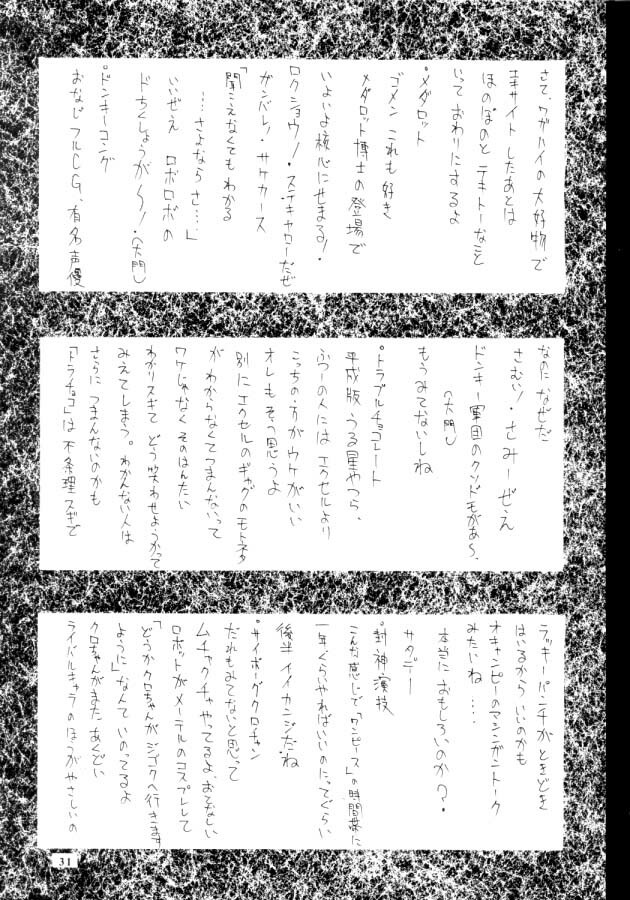 さて、ワガハイの大好物で
エキサイトしたあとは
ほのぼのとテキトーなこと
いっておわりにするよ
°メダロット
ゴメンこれも好き
メダロット博士の登場で
いよいよ核心にせまる!・
ロクショウ!ステキャローだぜ
ガンバレ!サケカース
「聞こえなくてもわかる
…さよならさ…」
いいぜえ ロボロボの
ドちくしょうが〜!・(大門)
°ドンキーコング
おなじフルCG、有名声優
なのになぜだ
さむい!・さみーぜえ
ドンキー軍団のクソドモがあ〜、
(大門)
もうみてないしね
°トラブルチョコレート
平成版うる星やつら、
ふつーの人にはエクセルより
こっちの方がウケがいい
オレもそう思うよ
別にエクセルのギャグのモトネタ
がわからなくてつまんないって
ワケじゃなくそのはんたい
わかりスギてどう笑わせようかって
みえてしまう。わかんない人は
さらにつまんないのかも
「トラチョコ」は不条理スギで
ラッキーパンチがときどき
はいるからいいのかも
オキャンピーのマシンガントーク
みたいね…
本当におもしろいのか?・
サタデー
°封神演技
こんな感じで「ワンピース」の時間帯に
一年ぐらいやればいいのにってぐらい
後半イイカンジだね
°サイボーグクロチャン
だれもみてないと思って
ムチャクチャやってるよ、おぞましい
ロボットがメーテルのコスプレして
「どうかクロちゃんがジゴクへ行きます
ように」なんていのってるよ
クロちゃんがまたあくどい
ライバルキャラのほうがやさしいの
31